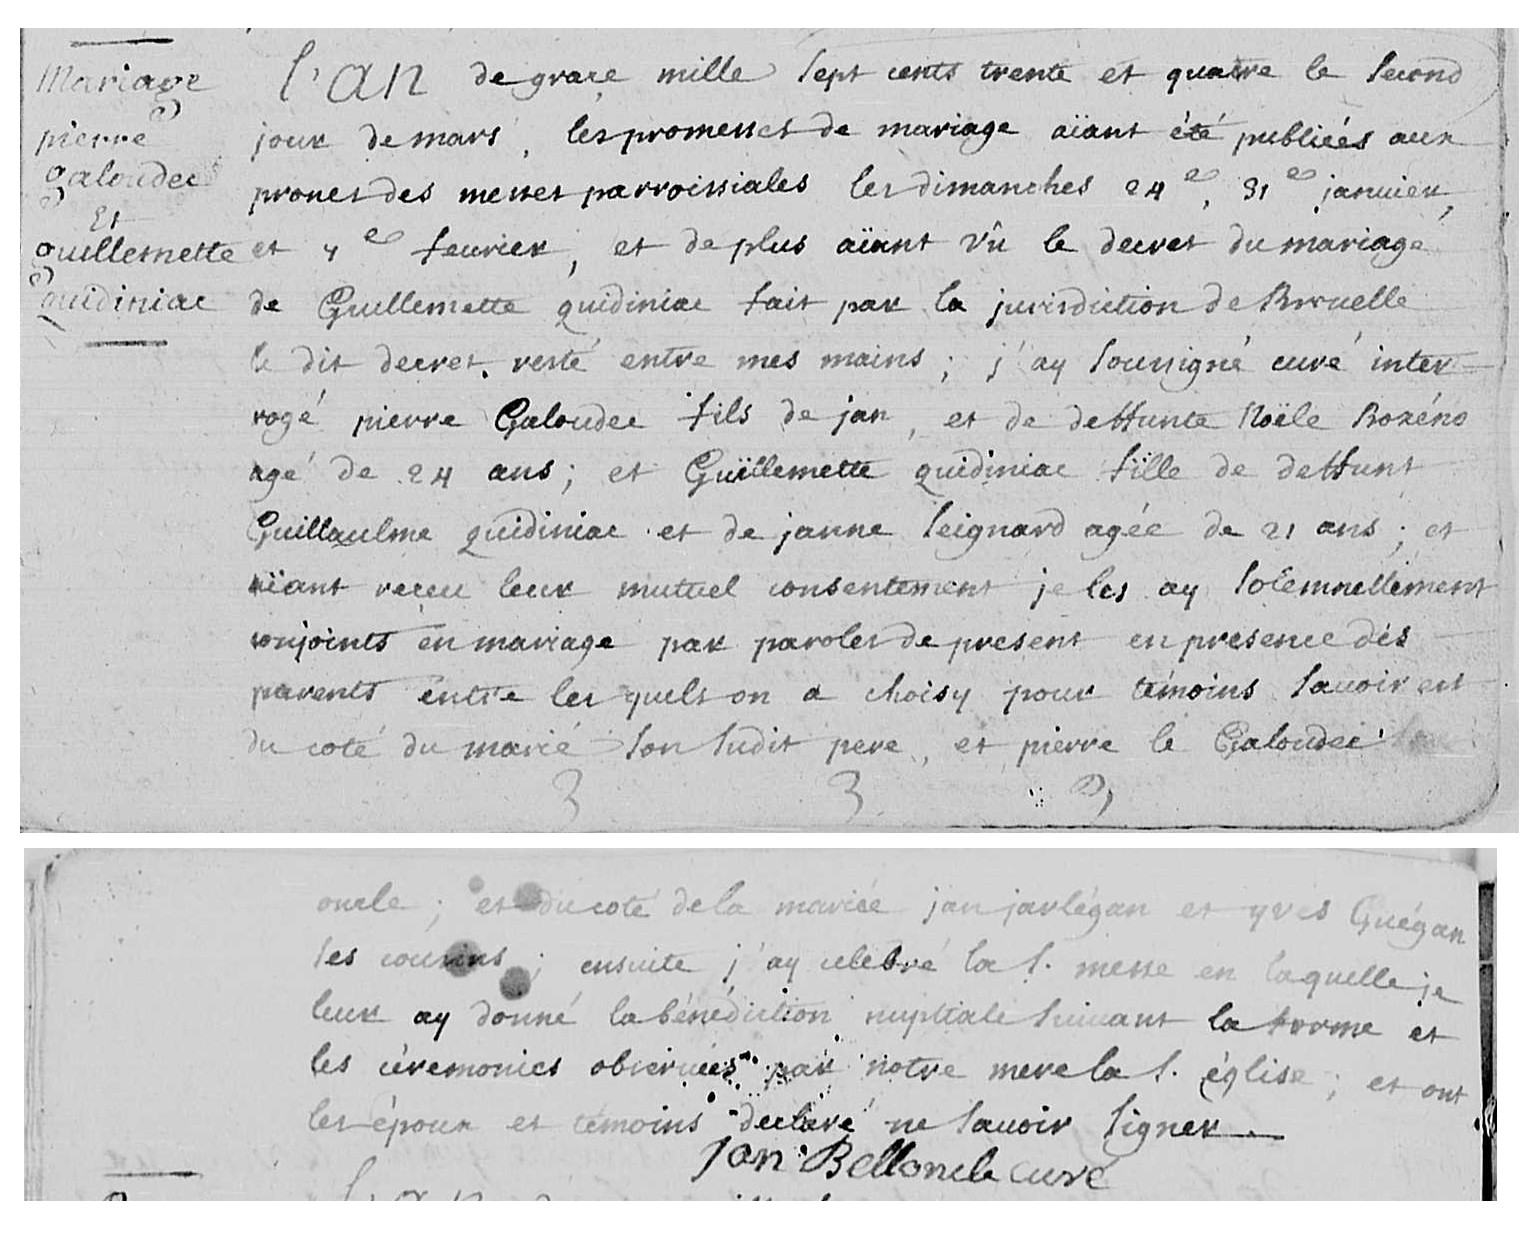 Mariage
pierre
galoudec
Et
guillemette
quidiniac
l'an de grace mille sept cents trente et quatre le second
jour de mars, les promesses de mariage aïant été publiées aux
prones des messes parroissiales les dimanches 24e, 31e janvier,
et 7e feurier, et de plus aïant vû le decret du mariage
de Guillemette quidiniac fait par la jurisdiction de
le dit decret resté entre mes mains; j'ay soussigné curé inter-
rogé pierre Galoudec fils de jan, et de deffunte Noële Rozéno
agé de 24 ans; et Guïllemette quidiniac fille de deffunt
Guillaulme quidiniac et de janne seignard agée de 21 ans; et
aïant receu leur mutuel consentement je les ay solemnellement
conjoints en mariage par paroles de present en presence des
parents entre les quels on a choisy pour témoins sauoir est
du coté du marié son sudit pere, et pierre le Galoudec
oncle; et du coté de la mariée jan jarlégan et yves Guégan
ses cousins; ensuite j'ay celebré la s. messe en laquelle je
leur ay donné la bénédiction nuptiale suiuant la forme et
les céremonies obseruées par notre mere la s. église; et ont
les époux et témoins declaré ne sauoir signer.
Jan Bellonele curé